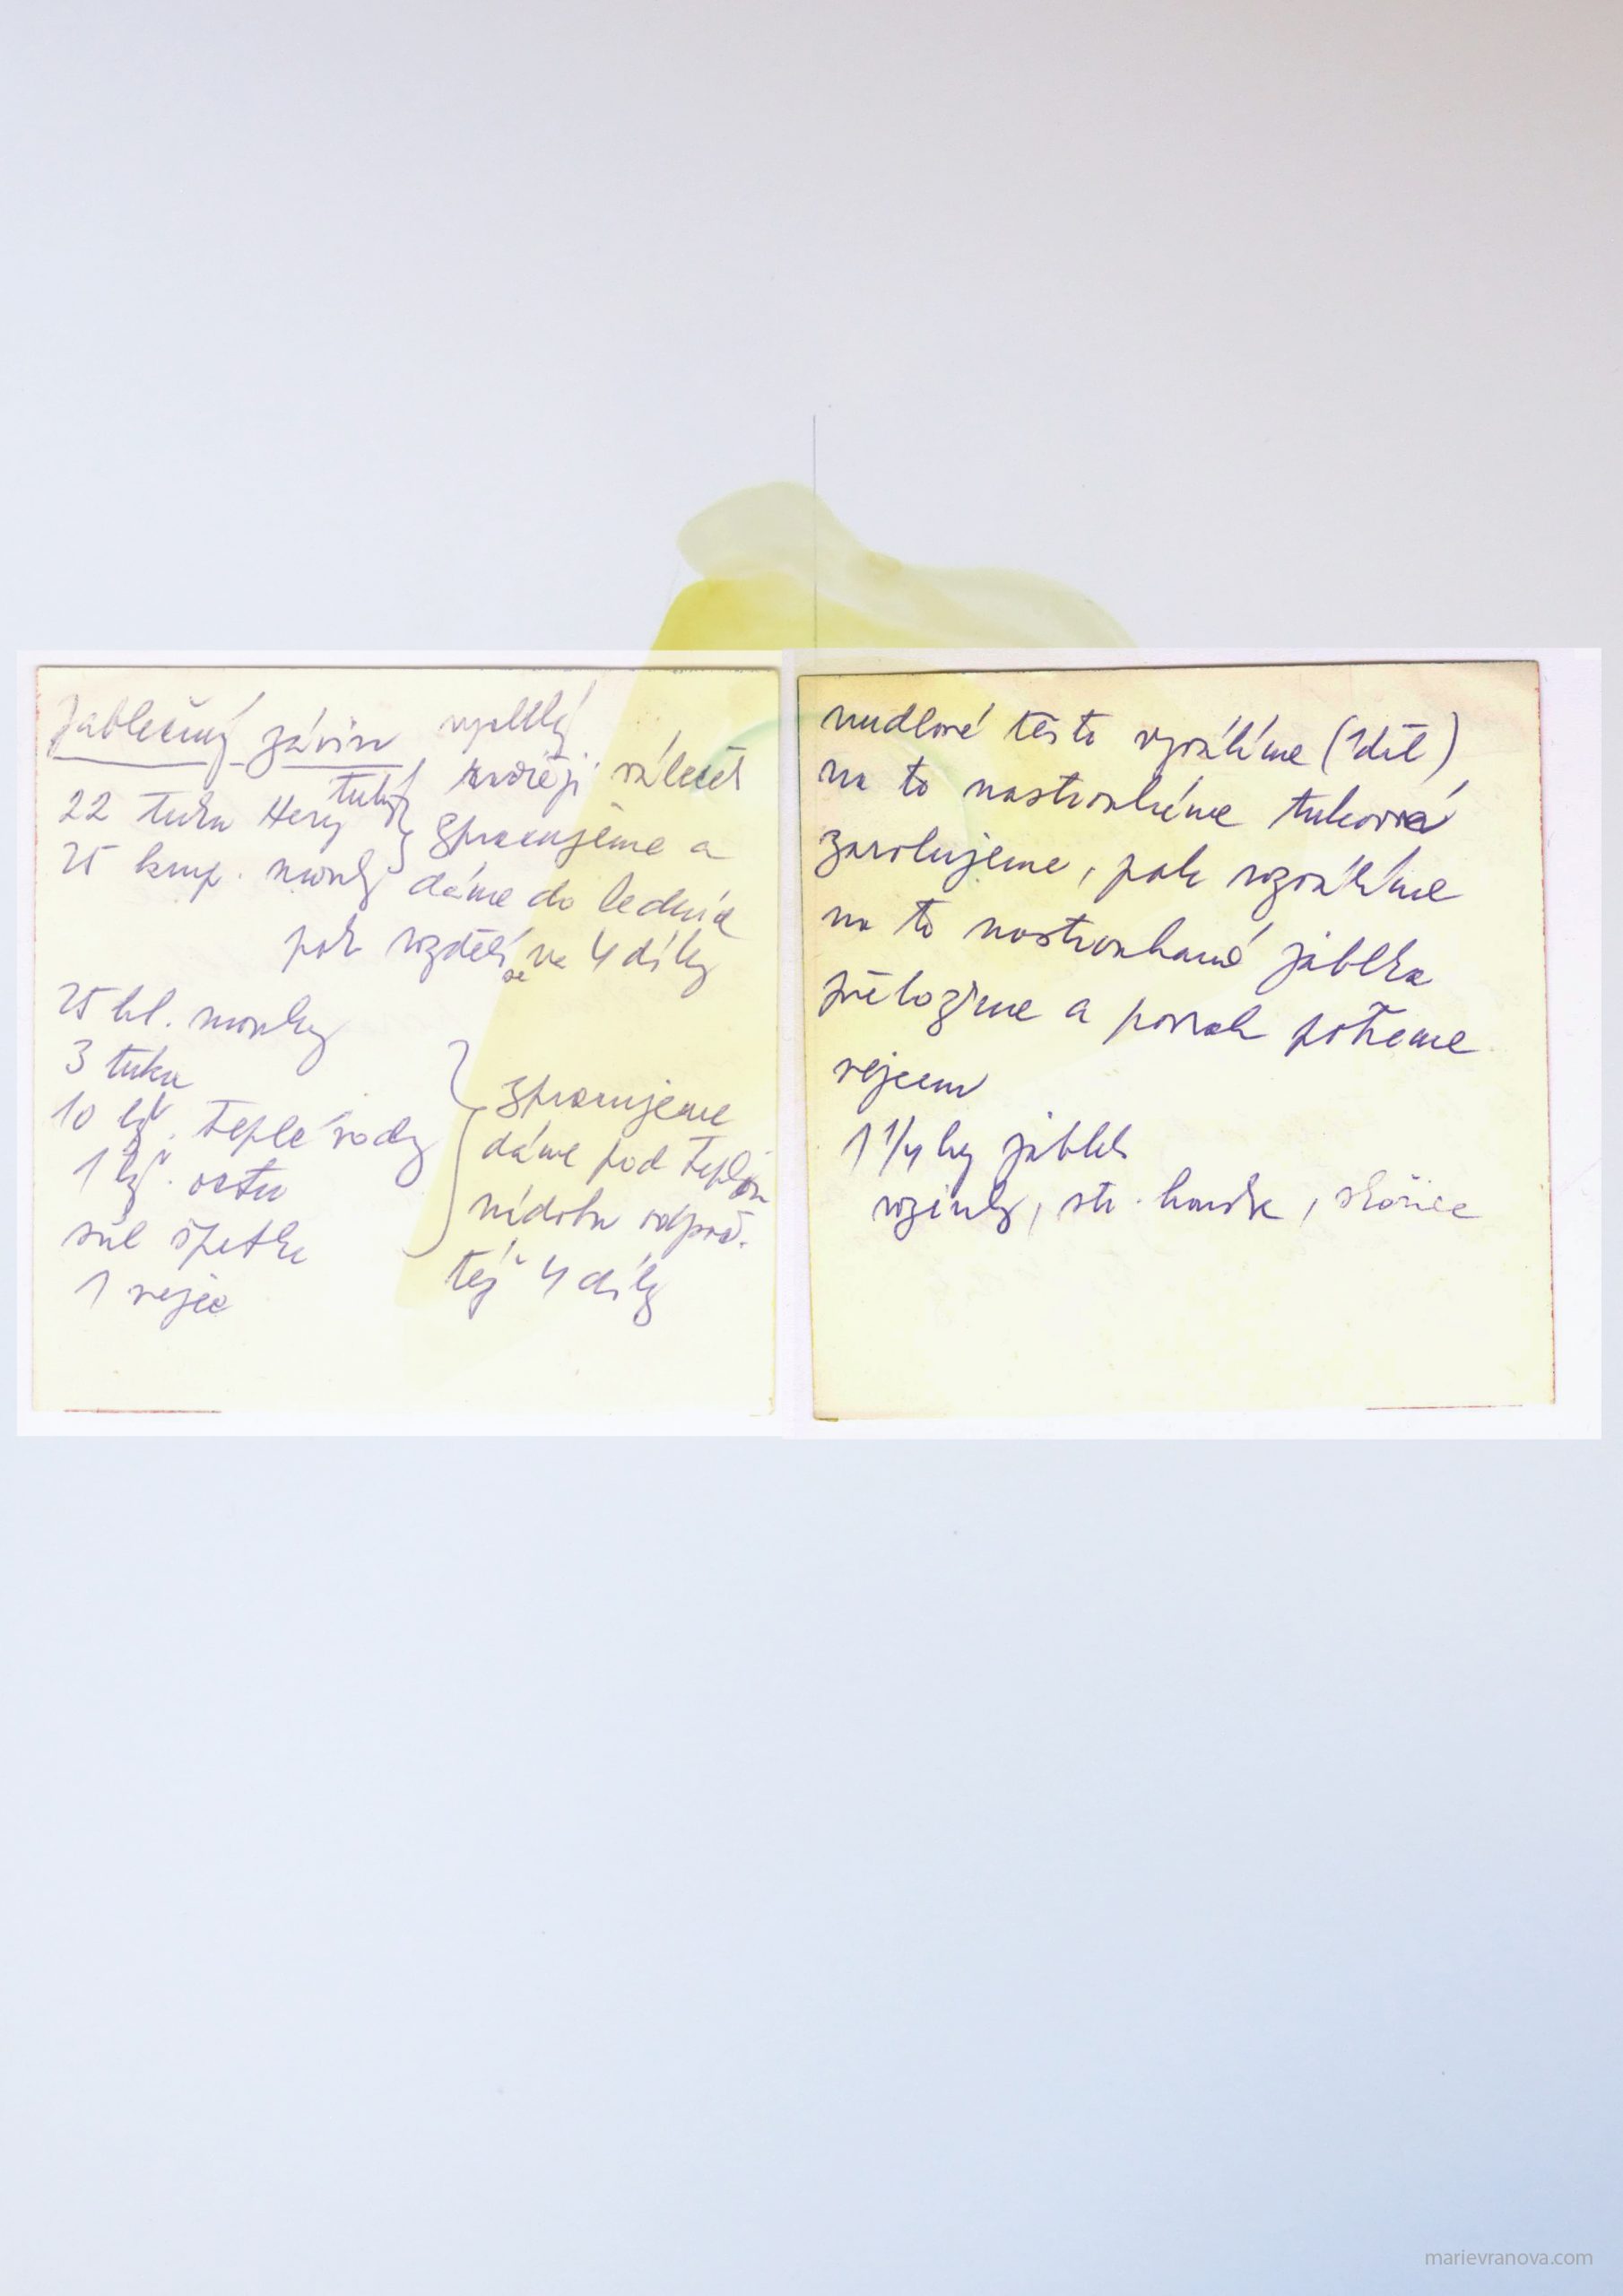 Jablečný závin
22 tuku Hery tuhý
25 krup. mouky
zpracujeme a
dáme do lednice
pak rozdělí se na 4 díly
25 hl. mouky
3 tuku
10 lž. teplé vody
1 lž. octu
sůl špetka
1 vejce
zpracujeme
dáme pod teplou
nádobu odpoč.
též 4 díly
nudlové těsto vyválíme (1díl)
na to nastrouháme tukové
zarolujeme, pak rozválíme
na to nastrouhané jablka
přeložíme a povrch potřeme
vejcem
1 1/4 kg jablek
rozinky, str. houska, skořice
marievranova.com